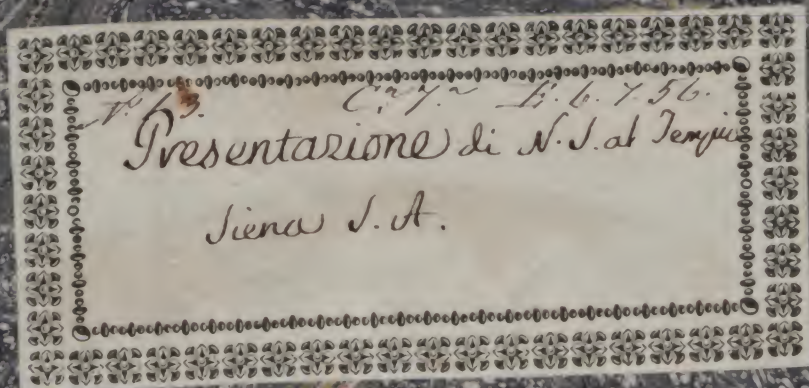 N.° 13. C.ª 7.ª L. 6. 7. 56.
Presentazione di N. S. al Tempio
Siena S. A.